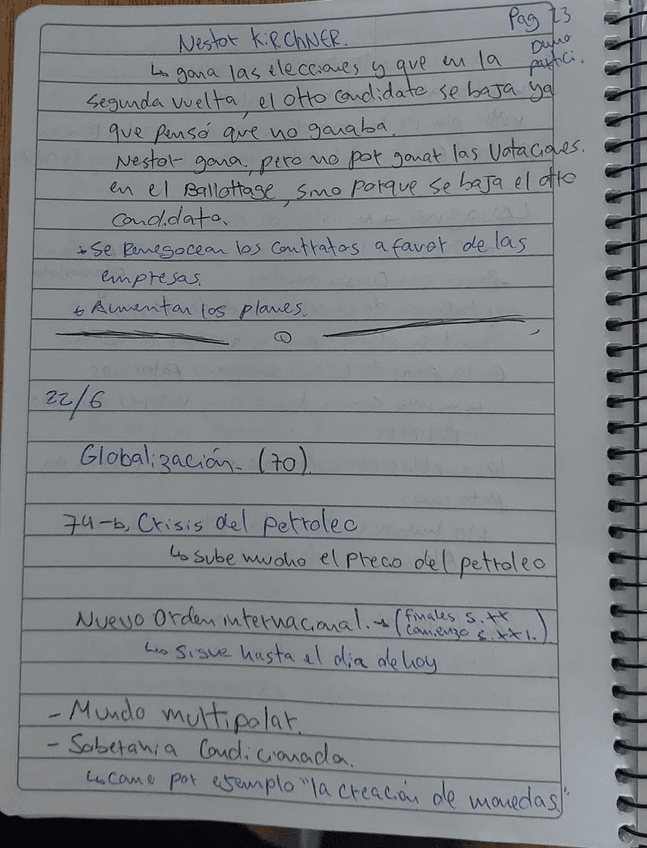 Pag 23
Nestor KiRChNER.
↳ gana las elecciones y que en la
segunda vuelta, el otro candidato se baja ya
que pensó que no ganaba.
Nestor gana, pero no por ganar las Votaciones.
en el Ballottage, sino porque se baja el otro
candidato.
Se Renegocean los contratos a favor de las
empresas.
Aumentan los planes.
22/6
Globalización - (70)
74 Crisis del petroleo
↳ sube mucho el precio del petroleo
Nuevo Orden internacional. → (finales s. XX
comienzo s. XXI.)
↳ sigue hasta el dia de hoy
- Mundo multipolar.
- Soberania Condicionada.
↳ como por ejemplo "la creación de monedas"